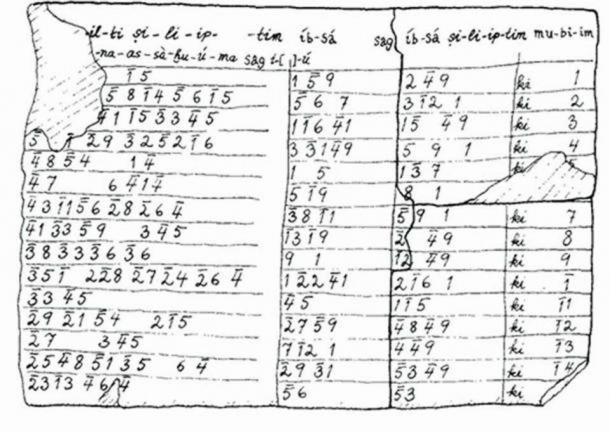 il-ti ṣi-li-ip- -tim íb-sá sag íb-sá ṣi-li-ip-tim mu-bi-im
-na-as-sà-ḫu-ú-ma sag i-[ ]-ú
1̄5 1 5̄9 2 4̄9 ki 1
5̄8 1̄4 5̄6 1̄5 5̄6 7 3 1̄2 1 ki 2
4̄1 1̄5 3̄3 4̄5 1 1̄6 4̄1 1 5̄ 4̄9 ki 3
5̄ 1̄ 2̄9 3̄2 5̄2 1̄6 3 3̄1 4̄9 5 9 1 ki 4
4̄8 5̄4 1 4̄ 1 5 1 3̄7
4̄7 6 4̄1 4̄ 5 1̄9 8 1
4̄3 1̄1 5̄6 2̄8 2̄6 4̄ 3̄8 1̄1 5̄9 1 ki 7
4̄1 3̄3 5̄9 3 4̄5 1̄3 1̄9 2̄ 4̄9 ki 8
3̄8 3̄3 3̄6 3̄6 9 1 1̄2 4̄9 ki 9
3̄5 1̄ 2 2̄8 2̄7 2̄4 2̄6 4̄ 1 2̄2 4̄1 2 1̄6 1 ki 1̄
3̄3 4̄5 4̄5 1 1̄5 ki 1̄1
2̄9 2̄1 5̄4 2 1̄5 2̄7 5̄9 4̄8 4̄9 ki 1̄2
2̄7 3 4̄5 7 1̄2 1 4 4̄9 ki 1̄3
2̄5 4̄8 5̄1 3̄5 6 4̄ 2̄9 3̄1 5̄3 4̄9 ki 1̄4
2̄3 1̄3 4̄6 4̄ 5̄6 5̄3 ki